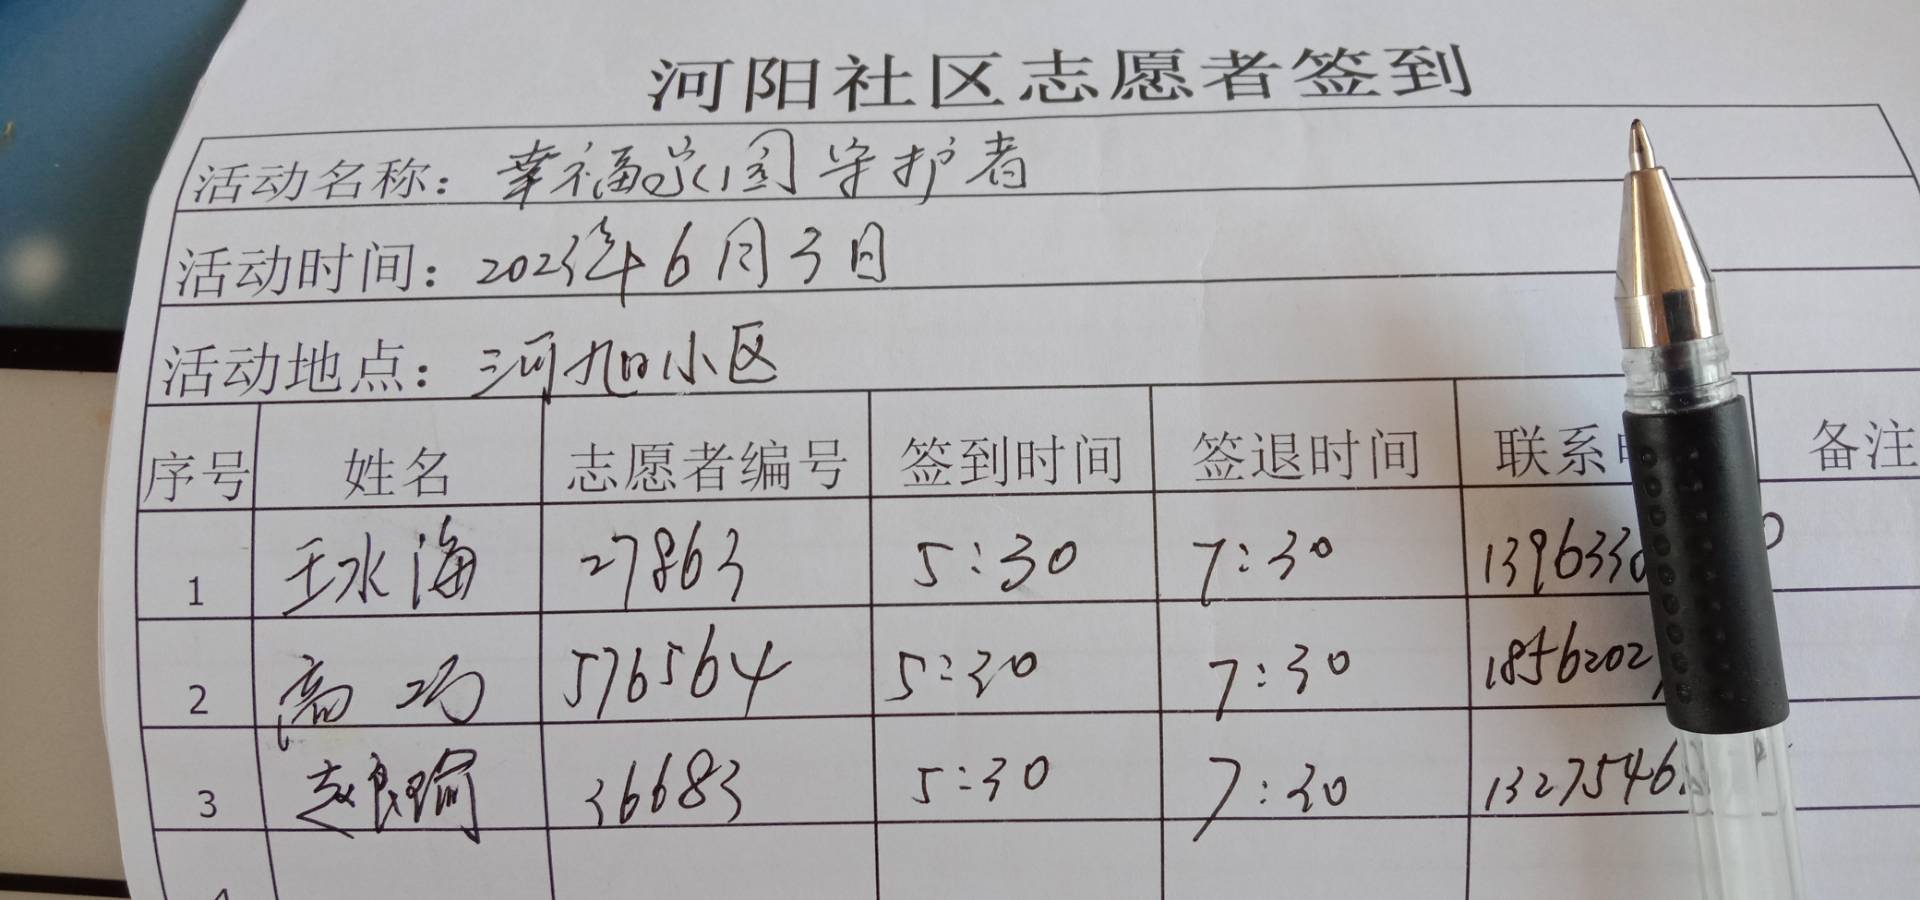 河阳社区志愿者签到
活动名称：幸福家园守护者
活动时间：2023年6月3日
活动地点：河旭小区
序号 姓名 志愿者编号 签到时间 签退时间 联系 备注
1 王水海 27863 5:30 7:30 1396330
2 高巧 576564 5:30 7:30 1856202
3 赵良瑜 36683 5:30 7:30 1327546